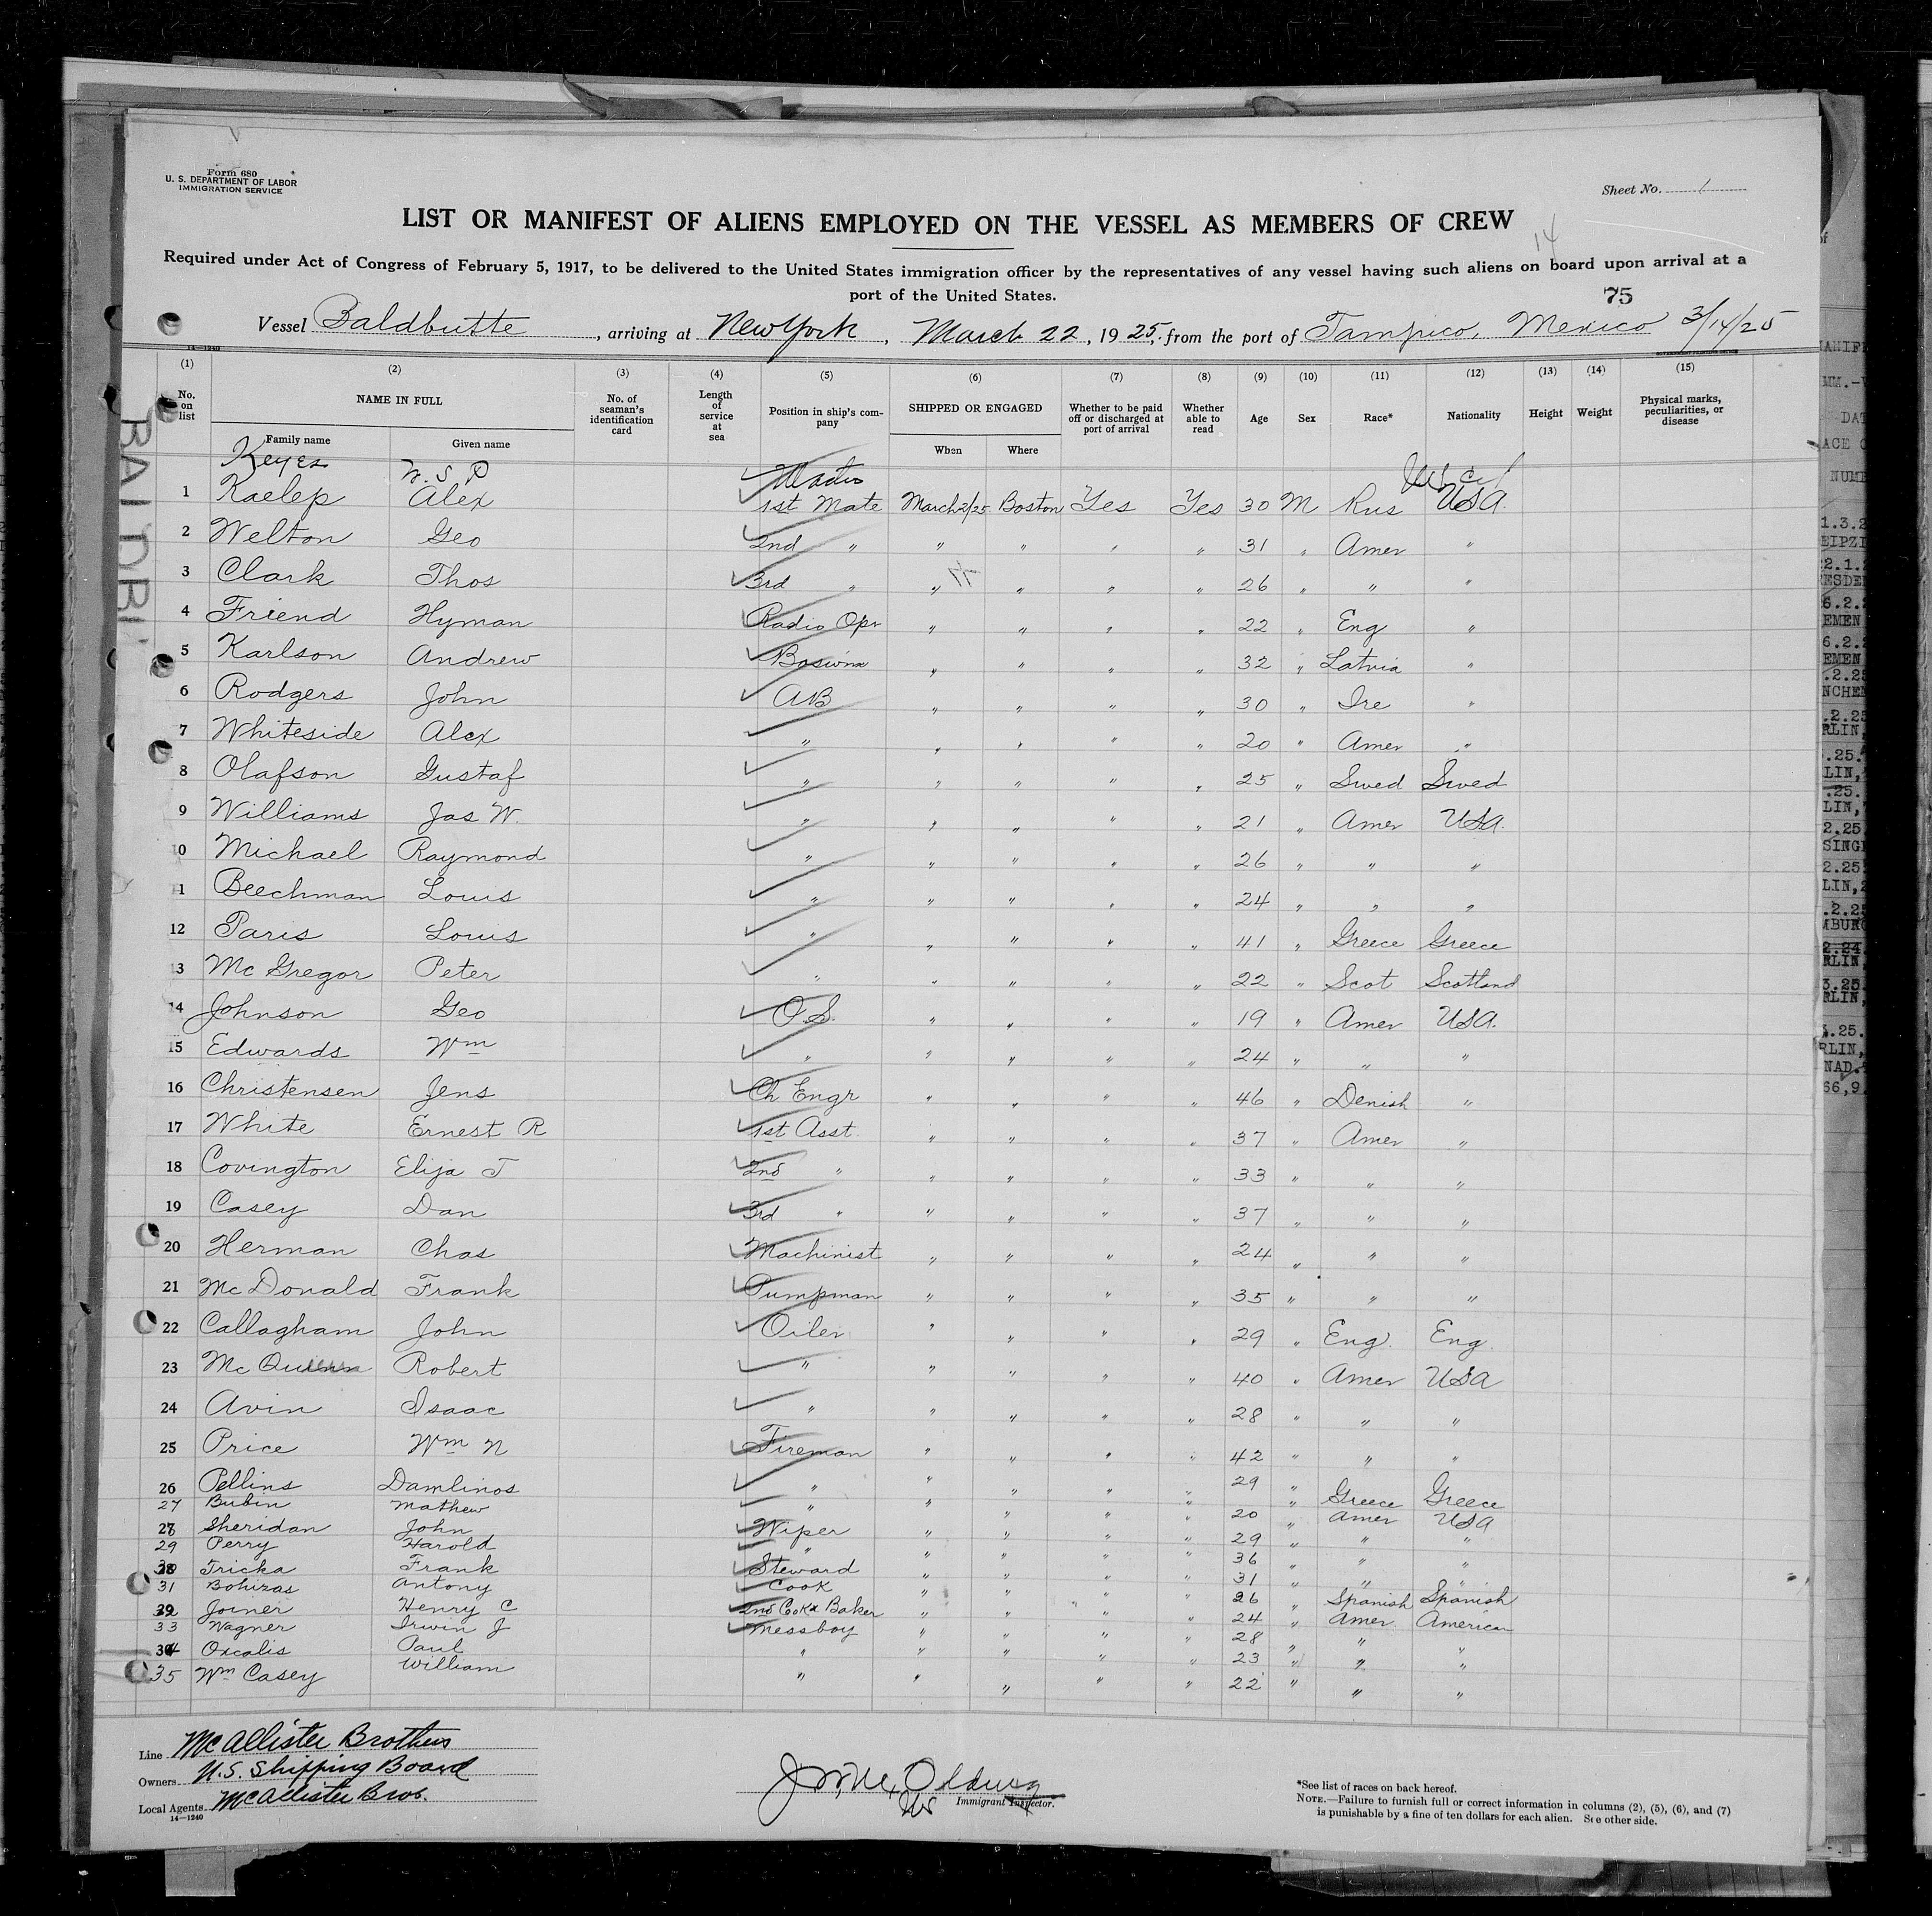 Form 680
U. S. DEPARTMENT OF LABOR
IMMIGRATION SERVICE
Sheet No. 1
LIST OR MANIFEST OF ALIENS EMPLOYED ON THE VESSEL AS MEMBERS OF CREW
14
Required under Act of Congress of February 5, 1917, to be delivered to the United States immigration officer by the representatives of any vessel having such aliens on board upon arrival at a
port of the United States.
75
Vessel Baldbutte, arriving at New York, March 22, 1925, from the port of Tampico, Mexico 3/14/25
14—1240 GOVERNMENT PRINTING OFFICE
(1) (2) (3) (4) (5) (6) (7) (8) (9) (10) (11) (12) (13) (14) (15)
No. on list NAME IN FULL No. of seaman's identification card Length of service at sea Position in ship's company SHIPPED OR ENGAGED Whether to be paid off or discharged at port of arrival Whether able to read Age Sex Race* Nationality Height Weight Physical marks, peculiarities, or disease
Family name Given name When Where
Keyes W. S. P Master US Cit
1 Kaelep Alex 1st Mate March 2/25 Boston Yes Yes 30 M Rus USA.
2 Welton Geo 2nd " " " " " 31 " Amer "
3 Clark Thos 3rd " " " " " 26 " " "
4 Friend Hyman Radio Opr " " " " 22 " Eng "
5 Karlson Andrew Bosiwn " " " " 32 " Latvia "
6 Rodgers John AB " " " " 30 " Ire "
7 Whiteside Alex " " " " " 20 " Amer "
8 Olafson Gustaf " " " " " 25 " Swed Swed
9 Williams Jas W. " " " " " 21 " Amer USA.
10 Michael Raymond " " " " " 26 " " "
11 Beechman Louis " " " " " 24 " " "
12 Paris Louis " " " " " 41 " Greece Greece
13 McGregor Peter " " " " " 22 " Scot Scotland
14 Johnson Geo O.S. " " " " 19 " Amer USA.
15 Edwards Wm " " " " " 24 " " "
16 Christensen Jens Ch Engr " " " " 46 " Denish "
17 White Ernest R 1st Asst. " " " " 37 " Amer "
18 Covington Elija T 2nd " " " " " 33 " " "
19 Casey Dan 3rd " " " " " 37 " " "
20 Herman Chas Machinist " " " " 24 " " "
21 McDonald Frank Pumpman " " " " 35 " " "
22 Callagham John Oiler " " " " 29 " Eng. Eng.
23 McQuinn Robert " " " " " 40 " Amer USA
24 Avin Isaac " " " " " 28 " " "
25 Price Wm N Fireman " " " " 42 " " "
26 Pellins Damlinos " " " " " 29 " Greece Greece
27 Bubin Mathew " " " " " 20 " Amer USA
28 Sheridan John Wiper " " " " 29 " " "
29 Perry Harold " " " " " 36 " " "
30 Tricka Frank Steward " " " " 31 " " "
31 Bohizas Antony Cook " " " " 26 " Spanish Spanish
32 Joiner Henry C 2nd Cook & Baker " " " " 24 " Amer. American
33 Wagner Irwin J Messboy " " " " 28 " " "
34 Oxcalis Paul " " " " " 23 " " "
35 Wm Casey William " " " " " 22 " " "
Line McAllister Brothers
Owners U.S. Shipping Board
Local Agents McAllister Bros.
14—1240
Immigrant Inspector.
*See list of races on back hereof.
NOTE.—Failure to furnish full or correct information in columns (2), (5), (6), and (7)
is punishable by a fine of ten dollars for each alien. See other side.